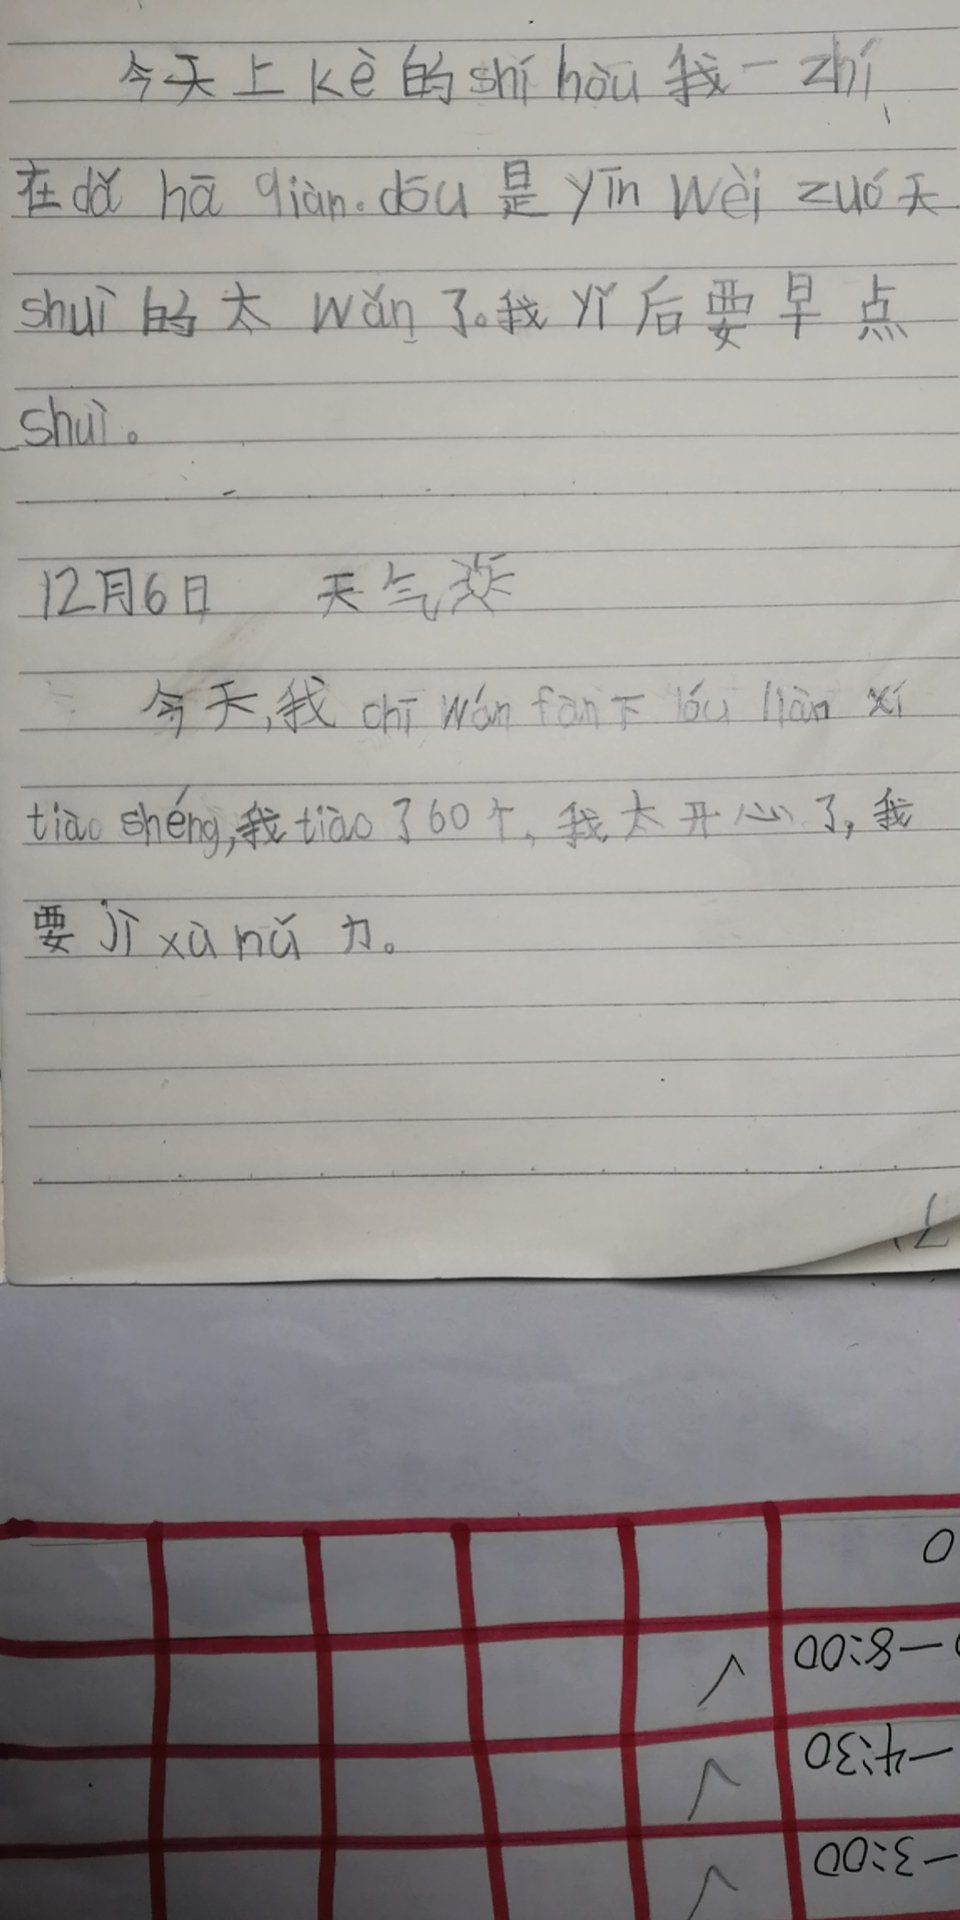 今天上 kè 的 shí hòu 我一 zhí
在 dǎ hā qiàn. dōu 是 yīn wèi zuó 天
shuì 的太 wǎn 了。我 yǐ 后要早点
shuì。
12月6日 天气
今天,我 chī wán fàn 下 lóu liàn xí
tiào shéng,我 tiào 了60个,我太开心了,我
要 jì xù nǔ 力。
0
—8:00
—4:30
—3:00